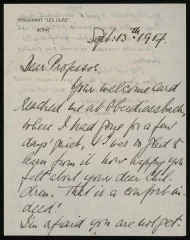 PENSIONNAT "LES LILAS"
BERNE
Sept. 13th 1917.
Dear Professor,
Your welcome card
reached me at
where I had gone for a few
days' quiet. I was so glad to
learn from it how happy you
felt about your dear chil-
dren. That is a comfort in-
deed!
I'm afraid you are not get-